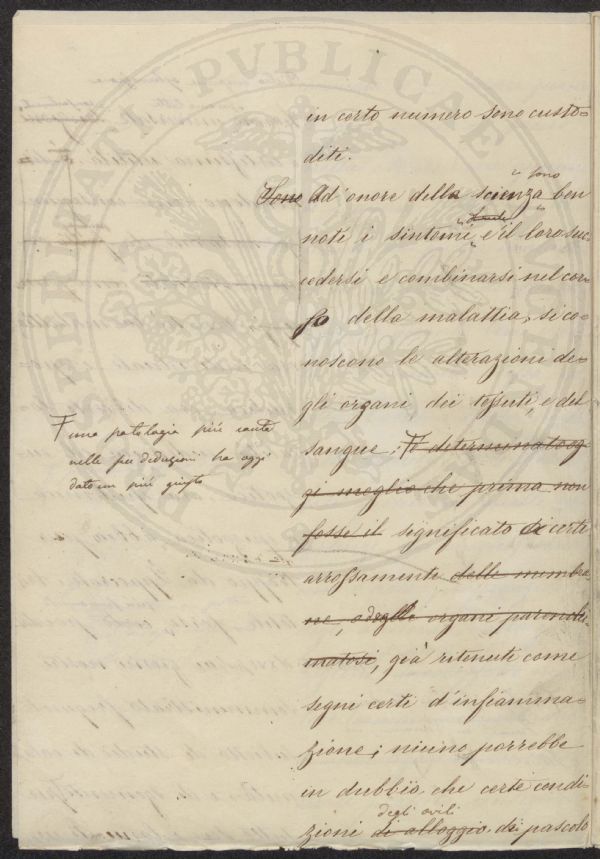 in certo numero sono custo=
diti.
Sono Ad'onore della scienza sono ben
noti i sintomi, e il loro suc=
cedersi e combinarsi nel cor=
so della malattia, si co=
noscono le alterazioni de=
gli organi dei tessuti, e del
sangue; È determinato og
gi meglio che prima non
fosse il significato di certi
arrossamenti delle membra
ne, o degli organi parenchi=
matosi, già ritenuti come
segni certi d'infiamma=
zione; niuno porrebbe
in dubbio che certe condi=
degli ovili
zioni di alloggio, di pascolo
F una patologia più cauta
nelle sue deduzioni ha oggi
dato un più giusto
STERLINATI PUBLICAE